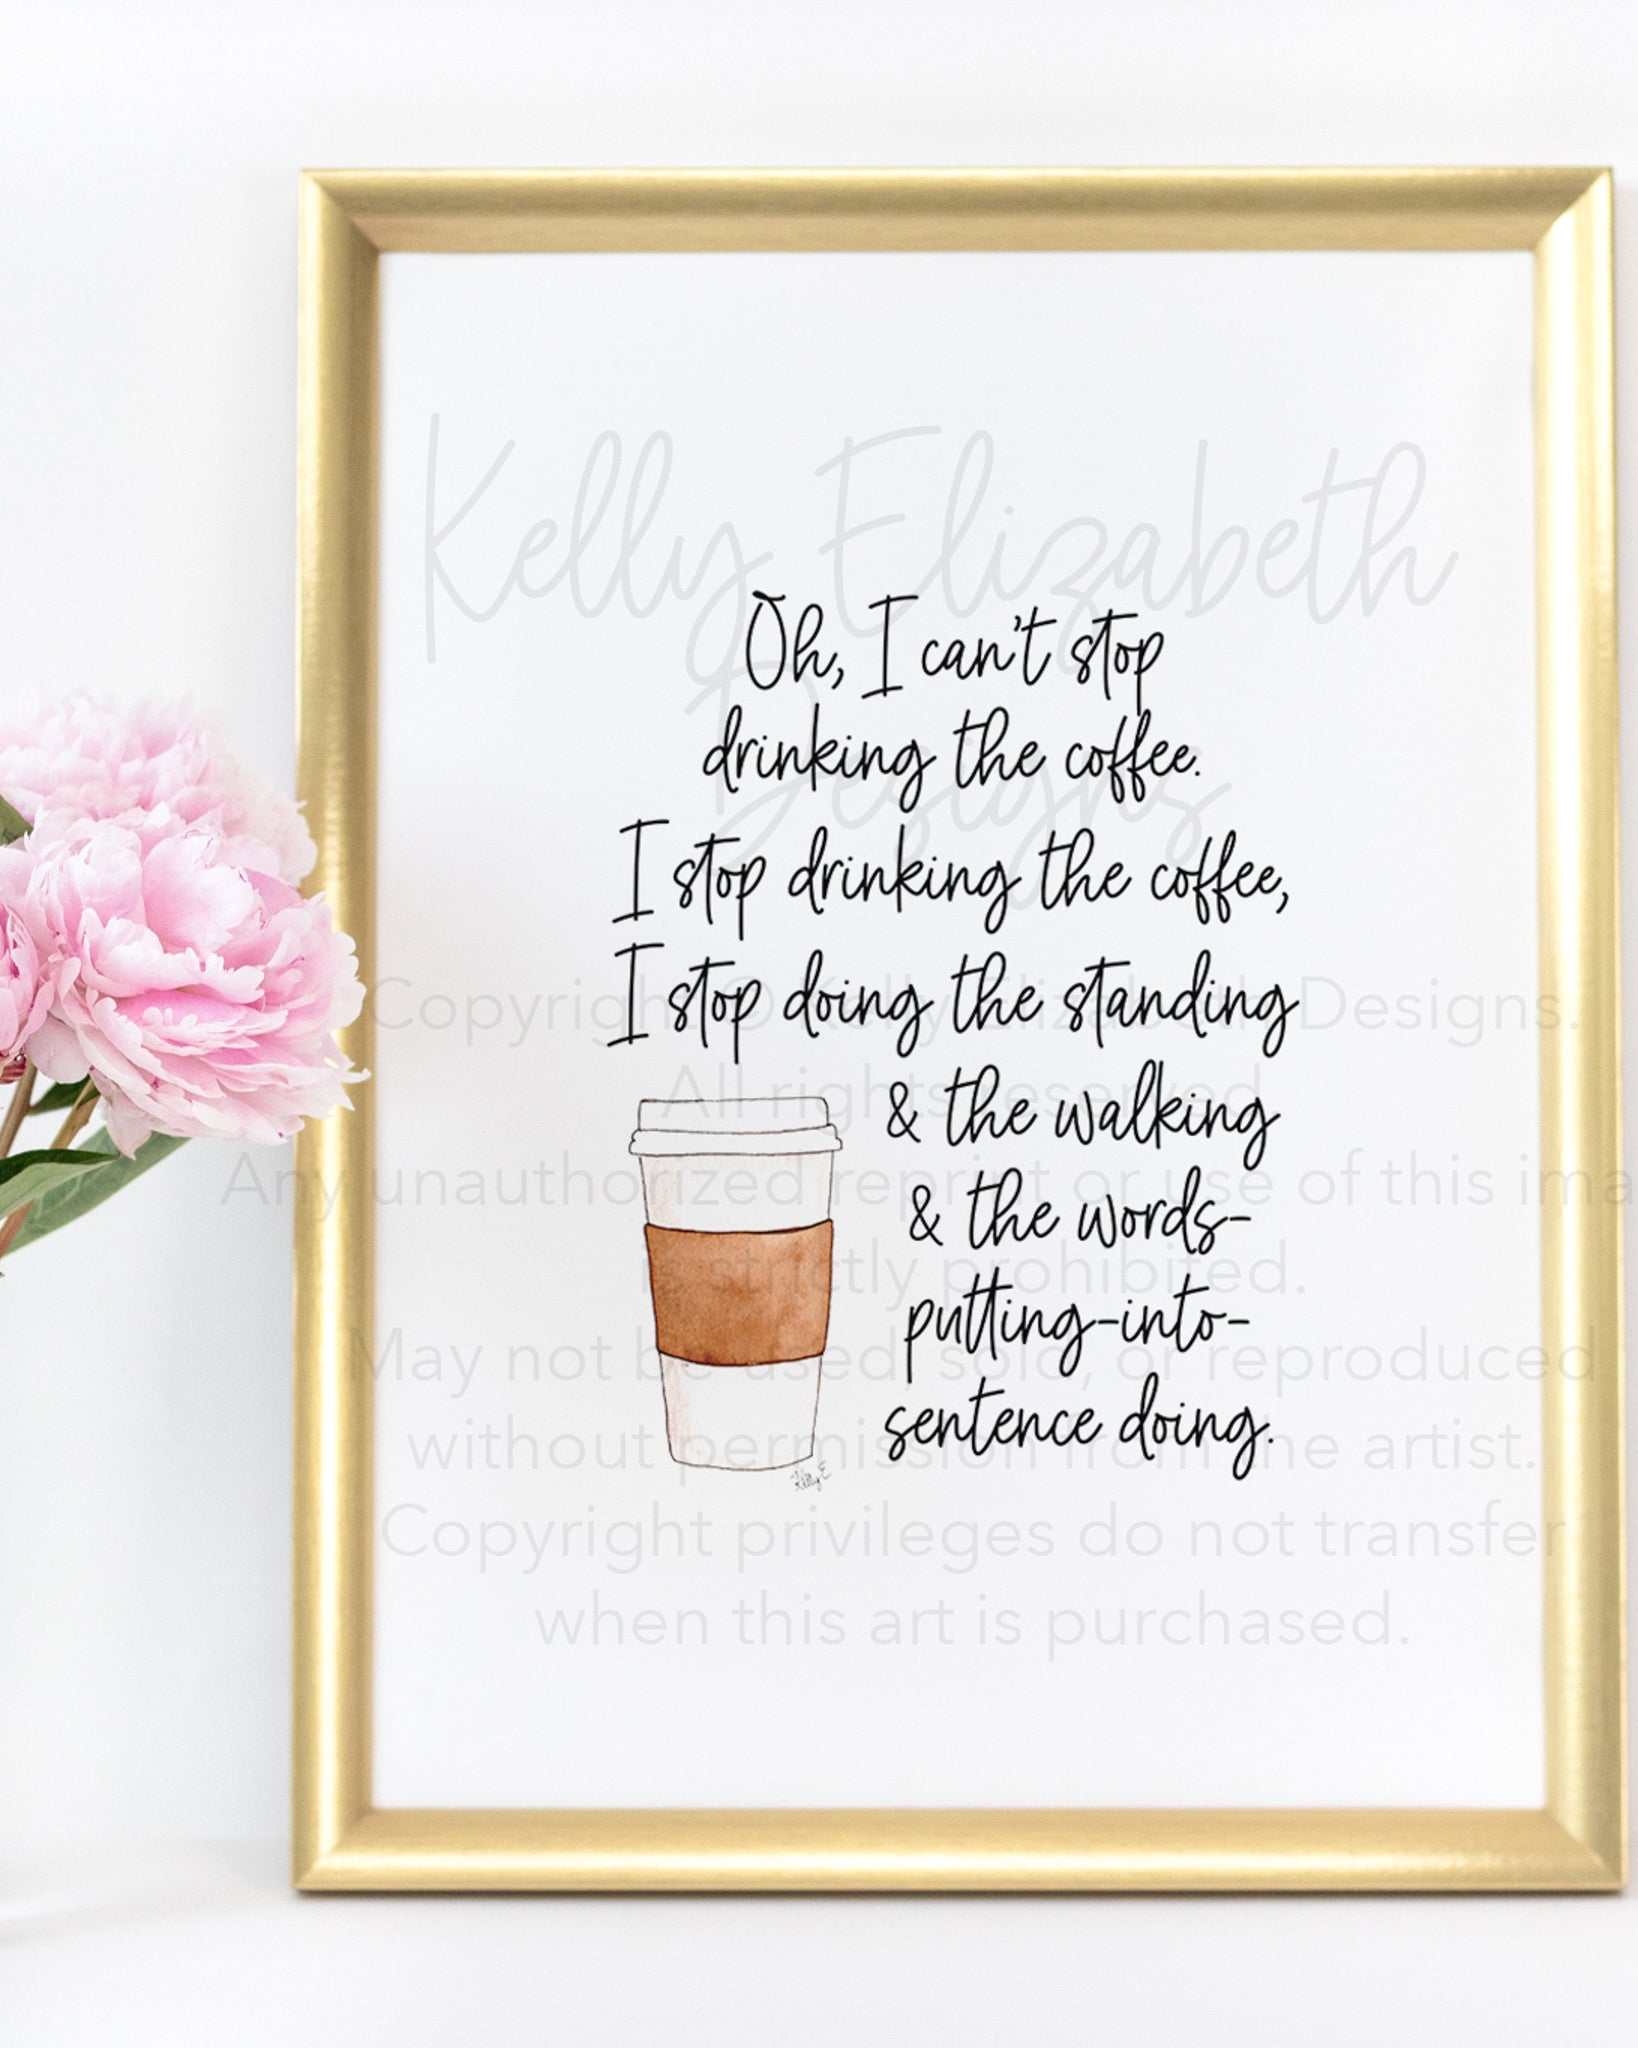 Kelly Elizabeth
Designs
Oh, I can't stop
drinking the coffee.
I stop drinking the coffee,
I stop doing the standing
& the walking
& the words-
putting-into-
sentence doing.
Kelly E
Copyright © Kelly Elizabeth Designs.
All rights reserved.
Any unauthorized reprint or use of this ima
is strictly prohibited.
May not be used, sold, or reproduced
without permission from the artist.
Copyright privileges do not transfer
when this art is purchased.